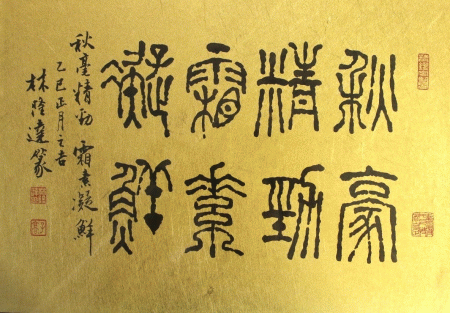 秋豪
精勁
霜素
凝鮮
秋毫精勁 霜素凝鮮
乙巳正月之吉
林隆達篆